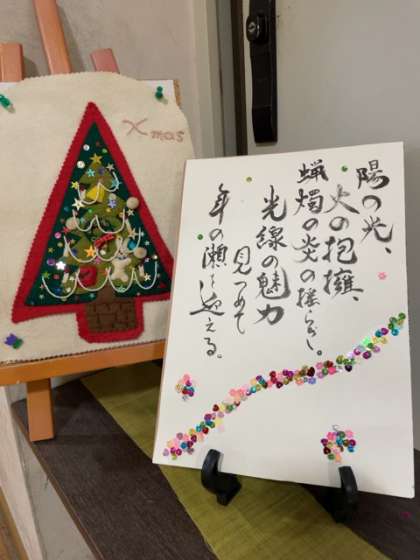 Xmas
陽の光、
火の抱擁、
蝋燭の炎の揺らぎ。
光線の魅力
見つめて
年の瀬を迎える。